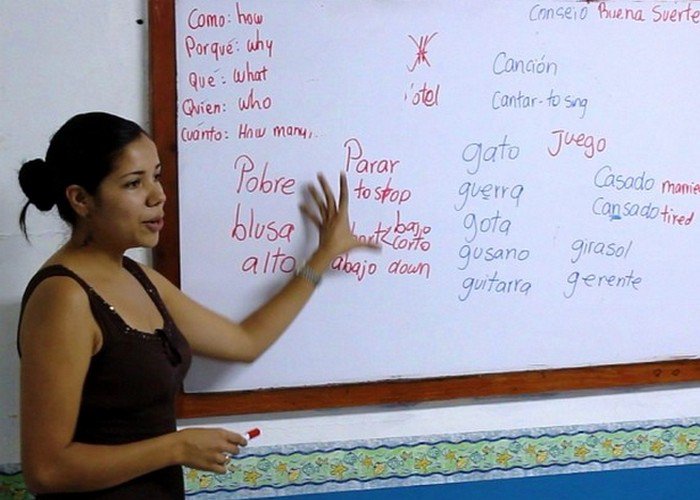 Como: how
Porqué: why
Qué: what
Quien: who
Cuánto: How many,...
Pobre
blusa
alto
Parar
to stop
bajo
corto
abajo down
Consejo Buena Suerte
Canción
Cantar - to sing
gato
guerra
gota
gusano
guitarra
Juego
girasol
gerente
Casado
Cansado tired